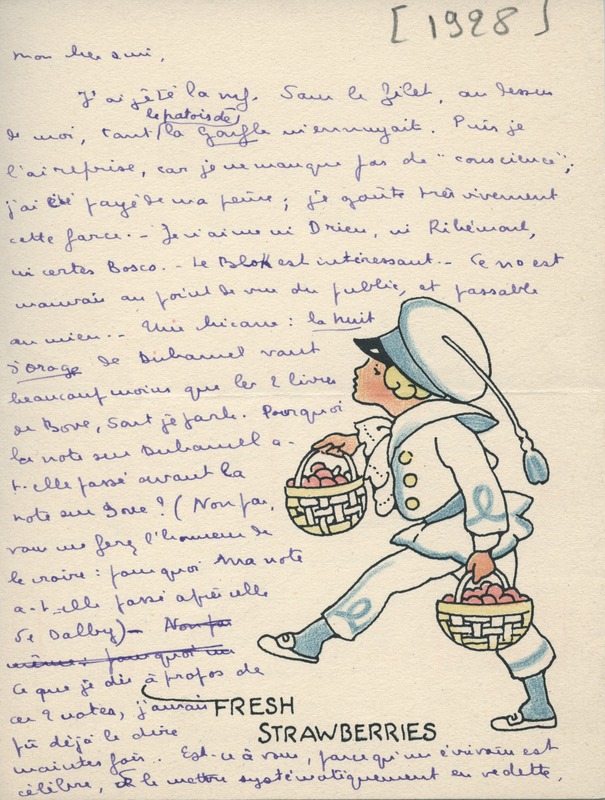 [1928]
mon cher ami,
J'ai jeté la nrf. Sans le filet, au dessus
le patois de
de moi, tant la Gaufle m'ennuyait. Puis je
l'ai reprise, car je ne manque pas de "conscience";
j'ai été payé de ma peine; je goûte très vivement
cette farce. - Je n'aime ni Drieu, ni Ribémont,
ni certes Bosco. - Le Blok est intéressant. - Ce no est
mauvais au point de vue du public, et passable
au mien. - Une chicane : la nuit
d'orage de Duhamel vaut
beaucoup moins que les 2 livres
de Bove, dont je parle. Pourquoi
la note sur Duhamel a-
t-elle passé avant la
note sur Bove ? (Non pas,
vous me ferez l'honneur de
le croire : pourquoi ma note
a-t-elle passé après celle
de Dalby) -
Ce que je dis à propos de
ces 2 notes, j'aurais
pu déjà le dire
maintes fois. . Est-ce à vous, parce qu'un écrivain est
célèbre, de le mettre systématiquement en vedette,
FRESH
STRAWBERRIES